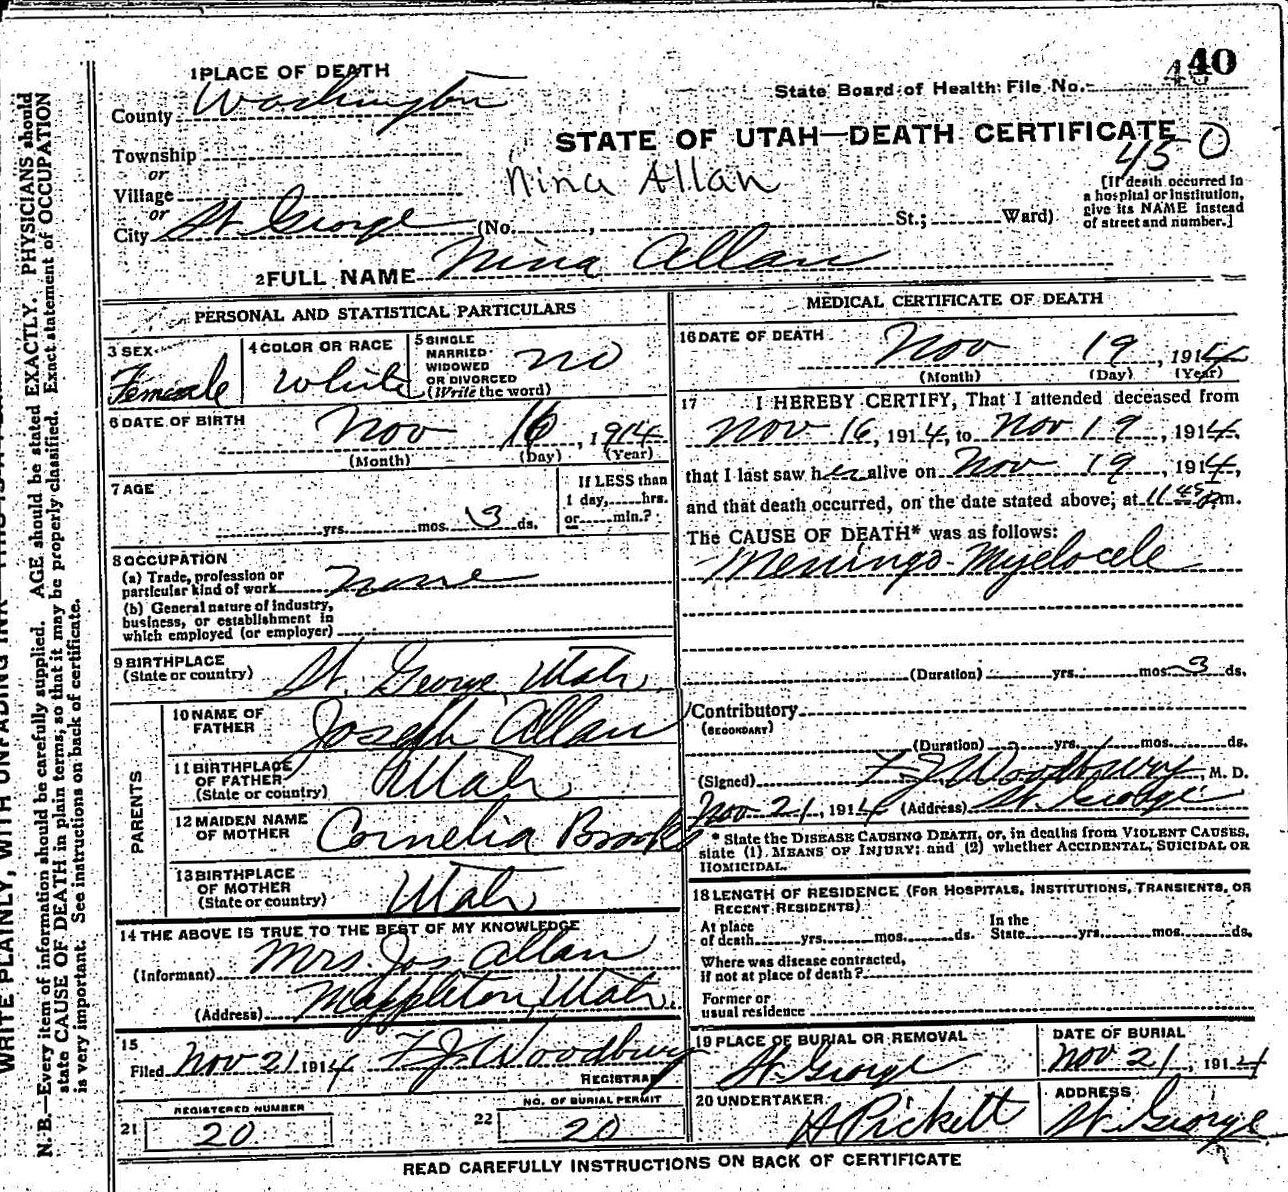 40
1 PLACE OF DEATH
State Board of Health File No.
County Washington
STATE OF UTAH—DEATH CERTIFICATE
450
Township
or
Village
or
City St. George (No. , St.; Ward)
Nina Allan
[If death occurred in
a hospital or institution,
give its NAME instead
of street and number.]
2 FULL NAME Nina Allan
PERSONAL AND STATISTICAL PARTICULARS
3 SEX
Female
4 COLOR OR RACE
White
5 SINGLE
MARRIED
WIDOWED
OR DIVORCED
(Write the word)
no
6 DATE OF BIRTH
Nov 16, 1914
(Month) (Day) (Year)
7 AGE
yrs. mos. 3 ds.
If LESS than
1 day, hrs.
or min.?
8 OCCUPATION
(a) Trade, profession or
particular kind of work none
(b) General nature of industry,
business, or establishment in
which employed (or employer)
9 BIRTHPLACE
(State or country) St. George, Utah
PARENTS
10 NAME OF
FATHER Joseph Allan
11 BIRTHPLACE
OF FATHER
(State or country) Utah
12 MAIDEN NAME
OF MOTHER Cornelia Brooks
13 BIRTHPLACE
OF MOTHER
(State or country) Utah
14 THE ABOVE IS TRUE TO THE BEST OF MY KNOWLEDGE
(Informant) Mrs. Jos Allan
(Address) Mappleton, Utah.
15
Filed Nov 21 1914 F J Woodbury
REGISTRAR
REGISTERED NUMBER
21 20
NO. OF BURIAL PERMIT
22 20
MEDICAL CERTIFICATE OF DEATH
16 DATE OF DEATH
Nov 19, 1914
(Month) (Day) (Year)
17 I HEREBY CERTIFY, That I attended deceased from
Nov 16, 1914, to Nov 19, 1914,
that I last saw her alive on Nov 19, 1914,
and that death occurred, on the date stated above, at 11 45 p.m.
The CAUSE OF DEATH* was as follows:
Meningo-Myelocele
(Duration) yrs. mos. 3 ds.
Contributory
(SECONDARY)
(Duration) yrs. mos. ds.
(Signed) F J Woodbury, M. D.
Nov 21, 1914 (Address) St. George
* State the DISEASE CAUSING DEATH, or, in deaths from VIOLENT CAUSES,
state (1) MEANS OF INJURY; and (2) whether ACCIDENTAL, SUICIDAL OR
HOMICIDAL.
18 LENGTH OF RESIDENCE (FOR HOSPITALS, INSTITUTIONS, TRANSIENTS, OR
RECENT RESIDENTS)
At place
of death yrs. mos. ds.
In the
State yrs. mos. ds.
Where was disease contracted,
if not at place of death?
Former or
usual residence
19 PLACE OF BURIAL OR REMOVAL
St. George
DATE OF BURIAL
Nov 21, 1914
20 UNDERTAKER
A Pickett
ADDRESS
St. George
READ CAREFULLY INSTRUCTIONS ON BACK OF CERTIFICATE
WRITE PLAINLY, WITH UNFADING INK
N. B.—Every item of information should be carefully supplied. AGE should be stated EXACTLY. PHYSICIANS should
state CAUSE OF DEATH in plain terms, so that it may be properly classified. Exact statement of OCCUPATION
is very important. See instructions on back of certificate.